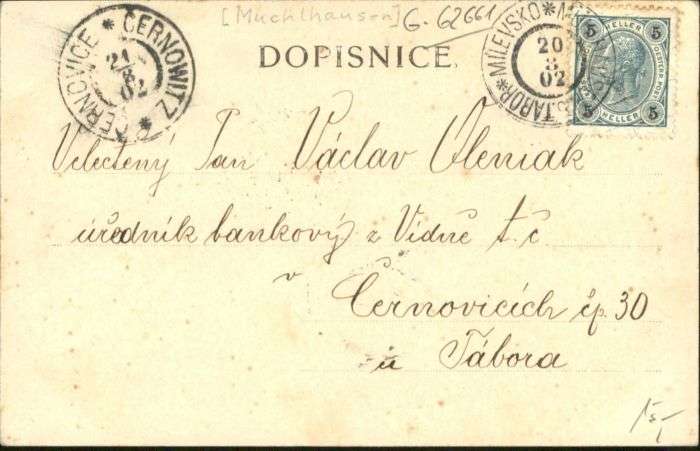 [Muehlhausen] G. 62661
DOPISNICE.
ČERNOVICE * ČERNOWITZ *
21
8
02
*MILEVSKO*
TÁBOR*
20
8
02
5 HELLER 5
5 HELLER 5
Velectěný Pan Václav Oleniak
úředník bankový z Vídně t. č
v
Černovicích čp. 30
u Tábora